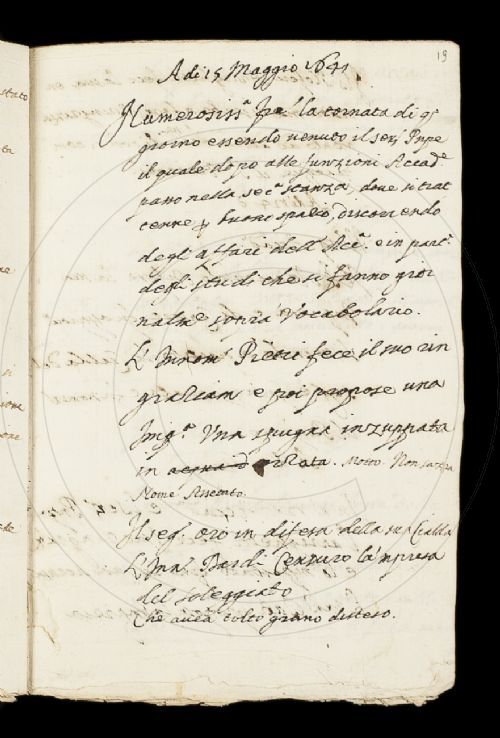 19
A di 15 Maggio 1641
Numerosiss.a fu la tornata di q.o
giorno essendo venuto il ser.o Prnpe
il quale dopo alle funzioni Accad.e
passò nella sec.a stanza, dove si trat
tenne p buono spazio, discorrendo
degl'affari dell'Acc.a e in part.e
degl'studi che si fanno gior
nalm.e sopra 'l Vocabolario.
L'Innom. Pieri fece il suo rin
graziam. e poi propose una
Imp.a Una spugna inzuppata
in acqua Motto. Non sazia
Nome Assetato.
Il seg. orò in difesa della sua Cialda
L'Inn. Bard. Censurò la 'mpresa
del soleggiato
Che avea tolto grano disteso.